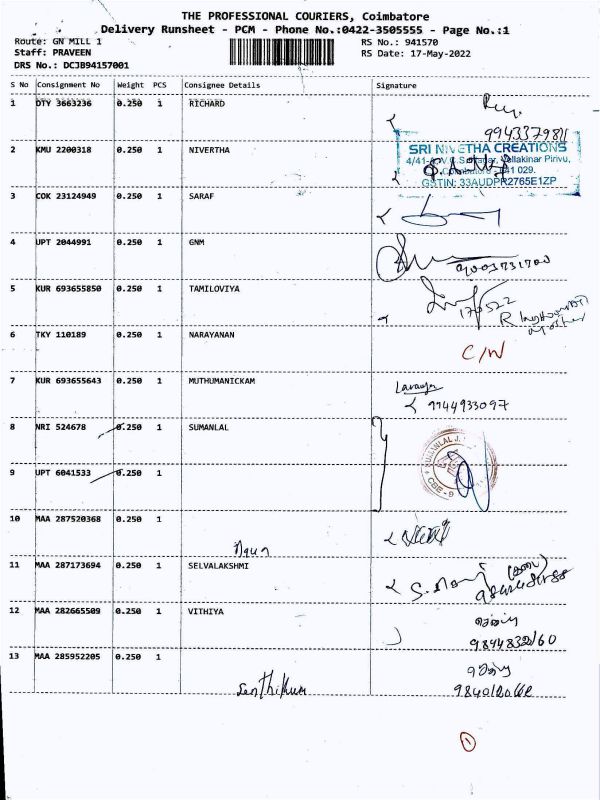 THE PROFESSIONAL COURIERS, Coimbatore
Delivery Runsheet - PCM - Phone No.:0422-3505555 - Page No.:1
Route: GN MILL 1 RS No.: 941570
Staff: PRAVEEN RS Date: 17-May-2022
DRS No.: DCJB94157001
S No Consignment No Weight PCS Consignee Details Signature
1 DTY 3663236 0.250 1 RICHARD
9943379811
2 KMU 2200318 0.250 1 NIVERTHA
SRI NIVETHA CREATIONS
Vellakinar Pirivu,
GSTIN: 33AUDPR2765E1ZP
3 COK 23124949 0.250 1 SARAF
4 UPT 2044991 0.250 1 GNM
9003731700
5 KUR 693655850 0.250 1 TAMILOVIYA
170522
6 TKY 110189 0.250 1 NARAYANAN
C/N
7 KUR 693655643 0.250 1 MUTHUMANICKAM
Lavanya
9944933097
8 NRI 524678 0.250 1 SUMANLAL
SUMANLAL J.
CBE-9
9 UPT 6041533 0.250 1
10 MAA 287520368 0.250 1
11 MAA 287173694 0.250 1 SELVALAKSHMI
12 MAA 282665509 0.250 1 VITHIYA
13 MAA 285952205 0.250 1
Senthilkum
1